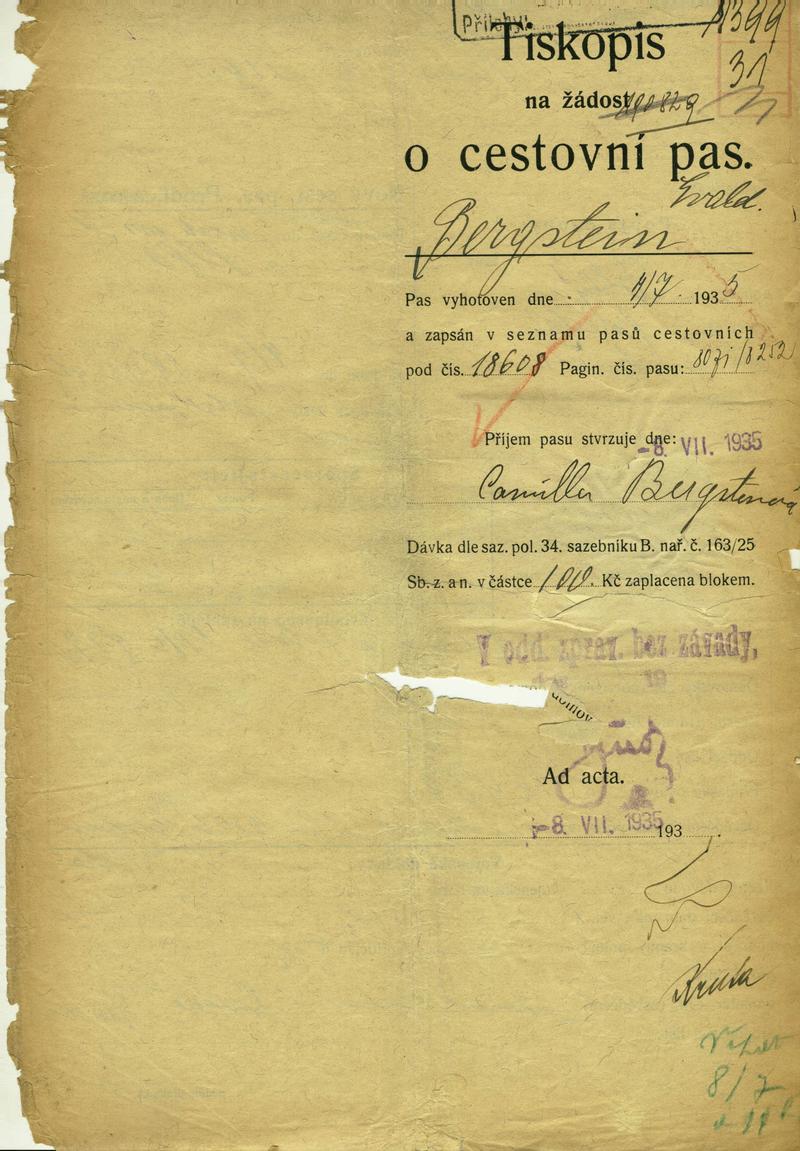 Přílohy:
1399
Tiskopis
31
na žádost
o cestovní pas.
Ewald.
Bergstein
Pas vyhotoven dne 4/7. 1935
a zapsán v seznamu pasů cestovních
pod čís. 18608 Pagin. čís. pasu: 8071/8252
Příjem pasu stvrzuje dne: -8. VII. 1935
Camilla Bergstenová
Dávka dle saz. pol. 34. sazebníku B. nař. č. 163/25
Sb. z. a n. v částce 100. Kč zaplacena blokem.
V odd. zprav. bez závady,
dne 19
Ad acta.
-8. VII. 1935 193
8/7